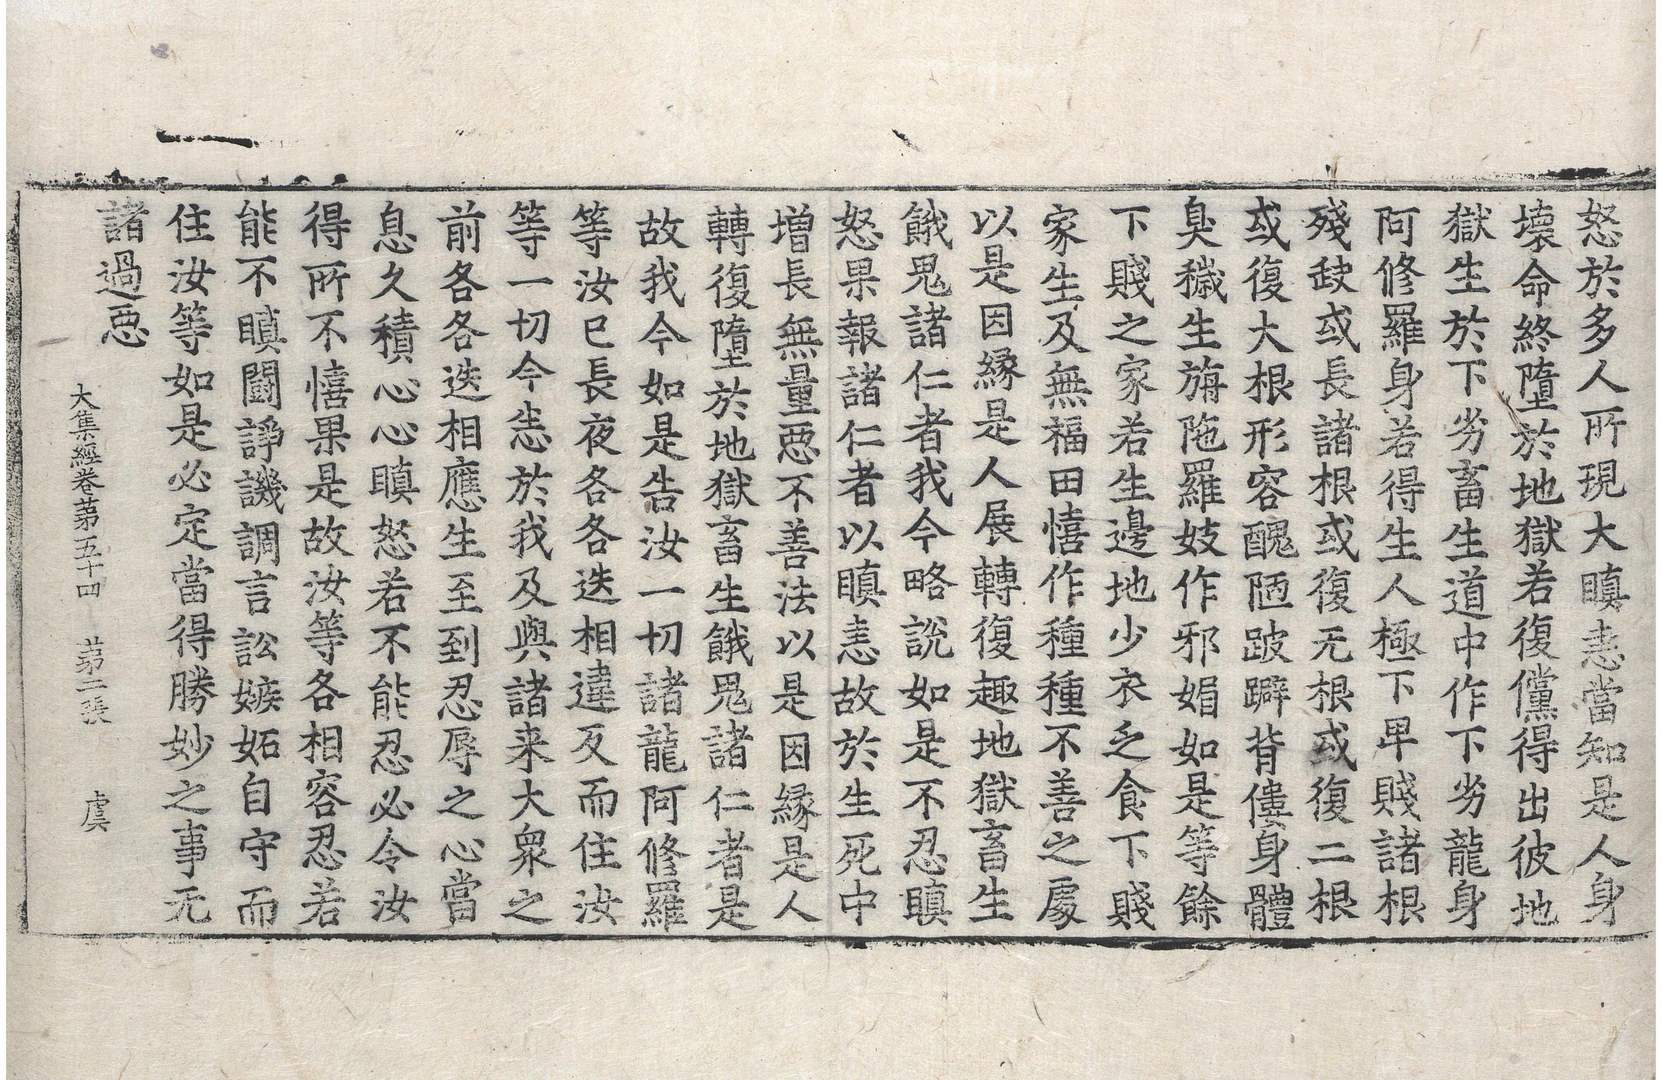 怒於多人所現大瞋恚當知是人身
壞命終墮於地獄若復儻得出彼地
獄生於下劣畜生道中作下劣龍身
阿修羅身若得生人極下卑賤諸根
殘缺或長諸根或復无根或復二根
或復大根形容醜陋跛躃背僂身體
臭穢生旃陁羅妓作邪媚如是等餘
下賤之家若生邊地少衣乏食下賤
家生及無福田憘作種種不善之處
以是因緣是人展轉復趣地獄畜生
餓鬼諸仁者我今略說如是不忍瞋
怒果報諸仁者以瞋恚故於生死中
增長無量惡不善法以是因緣是人
轉復墮於地獄畜生餓鬼諸仁者是
故我今如是告汝一切諸龍阿修羅
等汝已長夜各各迭相違反而住汝
等一切今恚於我及與諸来大衆之
前各各迭相應生至到忍辱之心當
息久積心心瞋怒若不能忍必令汝
得所不憘果是故汝等各相容忍若
能不瞋鬪諍譏調言訟嫉妬自守而
住汝等如是必定當得勝妙之事无
諸過惡
大集經卷苐五十四 苐二張 虞